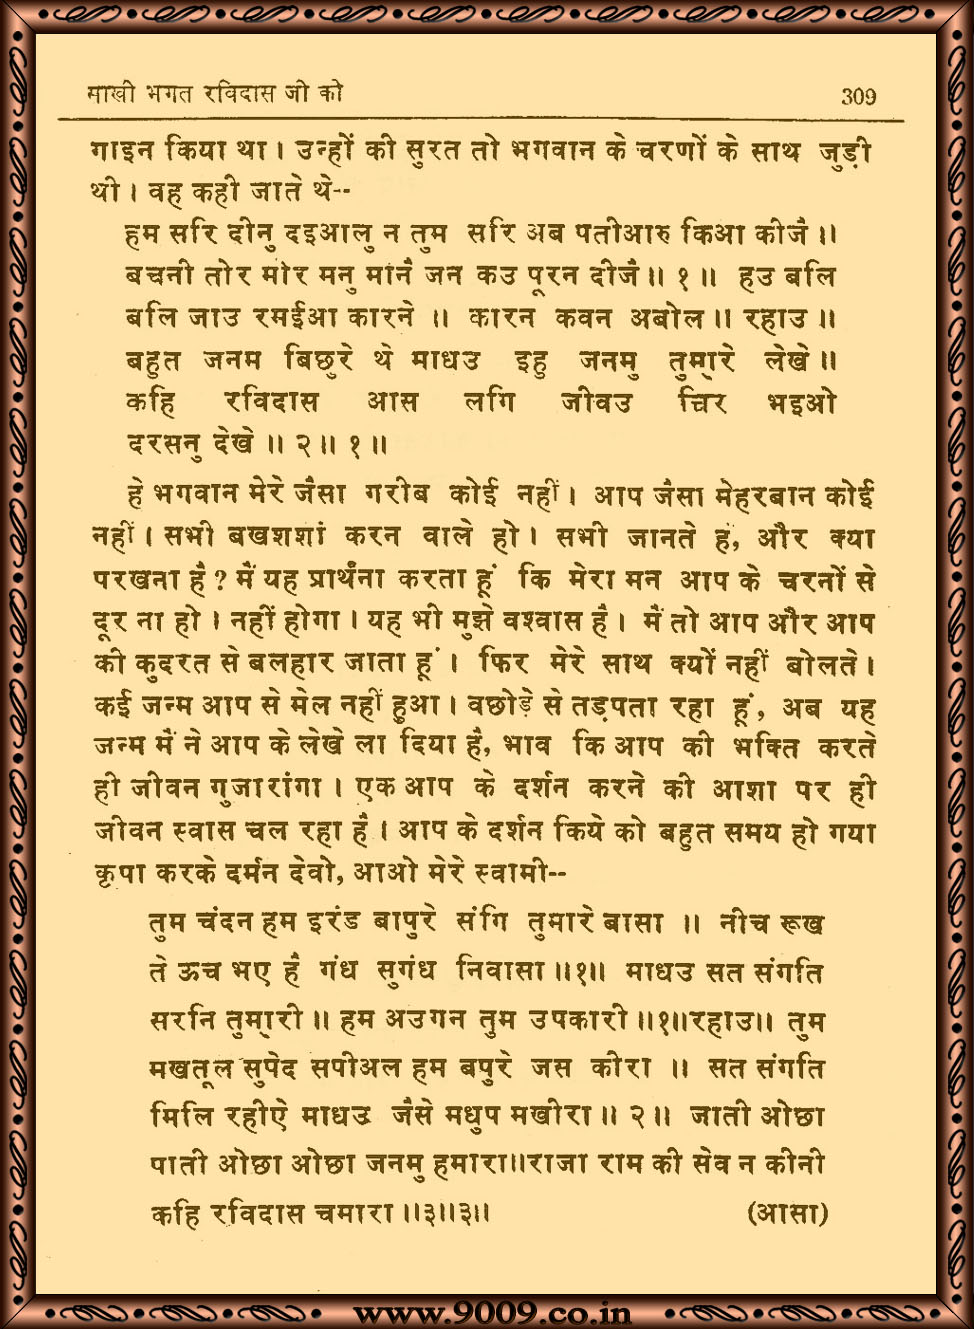 साखी भगत रविदास जी की 309
गाइन किया था। उन्हों की सुरत तो भगवान के चरणों के साथ जुड़ी
थी। वह कही जाते थे--
हम सरि दीनु दइआलु न तुम सरि अब पतीआरु किआ कीजै॥
बचनी तोर मोर मनु मानै जन कउ पूरन दीजै॥ १॥ हउ बलि
बलि जाउ रमईआ कारने॥ कारन कवन अबोल॥ रहाउ॥
बहुत जनम बिछुरे थे माधउ इहु जनमु तुम्हारे लेखे॥
कहि रविदास आस लगि जीवउ चिर भइओ
दरसनु देखे॥ २॥ १॥
हे भगवान मेरे जैसा गरीब कोई नहीं। आप जैसा मेहरबान कोई
नहीं। सभी बखशशां करन वाले हो। सभी जानते हैं, और क्या
परखना है? मैं यह प्रार्थना करता हूं कि मेरा मन आप के चरनों से
दूर ना हो। नहीं होगा। यह भी मुझे वश्वास है। मैं तो आप और आप
की कुदरत से बलहार जाता हूं। फिर मेरे साथ क्यों नहीं बोलते।
कई जन्म आप से मेल नहीं हुआ। वछोड़े से तड़पता रहा हूं, अब यह
जन्म मैं ने आप के लेखे ला दिया है, भाव कि आप की भक्ति करते
ही जीवन गुजारांगा। एक आप के दर्शन करने की आशा पर ही
जीवन स्वास चल रहा है। आप के दर्शन किये को बहुत समय हो गया
कृपा करके दर्मन देवो, आओ मेरे स्वामी--
तुम चंदन हम इरंड बापुरे संगि तुमारे बासा॥ नीच रूख
ते ऊच भए है गंध सुगंध निवासा॥१॥ माधउ सत संगति
सरनि तुम्हारी॥ हम अउगन तुम उपकारी॥१॥रहाउ॥ तुम
मखतूल सुपेद सपीअल हम बपुरे जस कीरा॥ सत संगति
मिलि रहीऐ माधउ जैसे मधुप मखीरा॥ २॥ जाती ओछा
पाती ओछा ओछा जनमु हमारा॥राजा राम की सेव न कीनी
कहि रविदास चमारा॥३॥३॥ (आसा)
www.9009.co.in